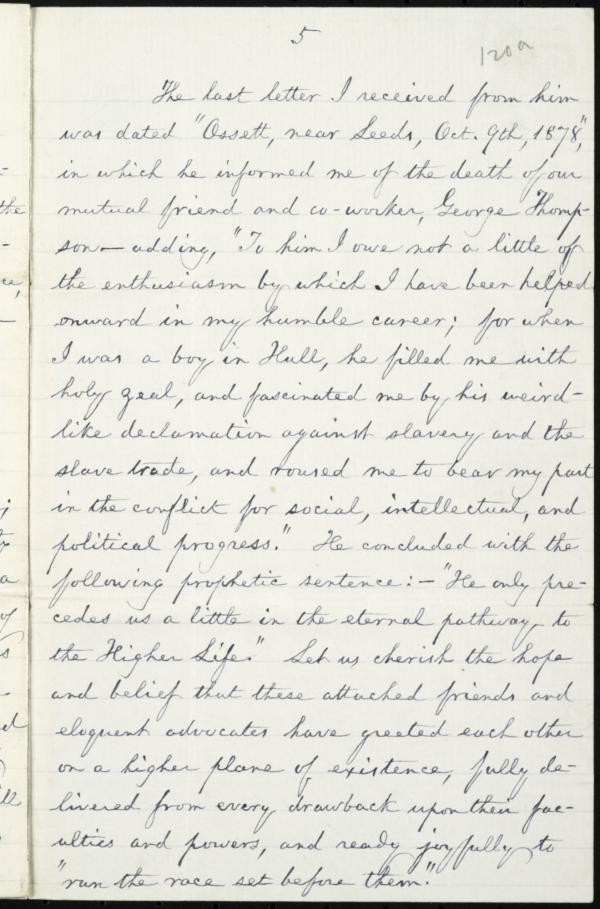 5
120a
The last letter I received from him
was dated "Ossett, near Leeds, Oct. 9th, 1878",
in which he informed me of the death of our
mutual friend and co-worker, George Thomp-
son — adding, "To him I owe not a little of
the enthusiasm by which I have been helped
onward in my humble career; for when
I was a boy in Hull, he filled me with
holy zeal, and fascinated me by his weird-
like declamation against slavery and the
slave trade, and roused me to bear my part
in the conflict for social, intellectual, and
political progress." He concluded with the
following prophetic sentence: — "He only pre-
cedes us a little in the eternal pathway to
the Higher Life." Let us cherish the hope
and belief that these attached friends and
eloquent advocates have greeted each other
on a higher plane of existence, fully de-
livered from every drawback upon their fac-
ulties and powers, and ready joyfully to
"run the race set before them."